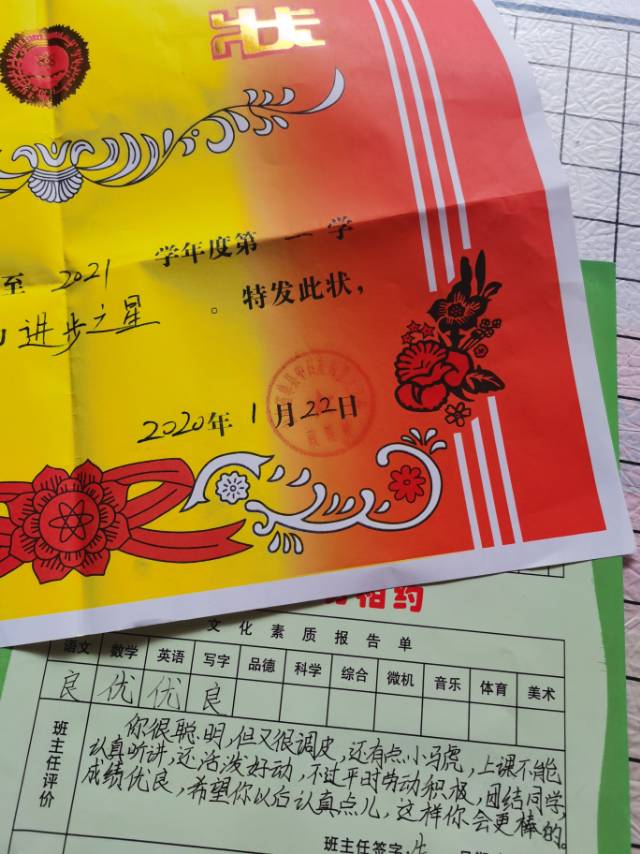 状
至 2021 学年度第 一 学
进步之星 。特发此状，
2020年 1 月 22 日
相约
文化素质报告单
语文 数学 英语 写字 品德 科学 综合 微机 音乐 体育 美术
良 优 优 良
班主任评价
你很聪明，但又很调皮，还有点小马虎，上课不能
认真听讲，还活泼好动，不过平时劳动积极，团结同学，
成绩优良，希望你以后认真点儿，这样你会更棒的。
班主任签字：